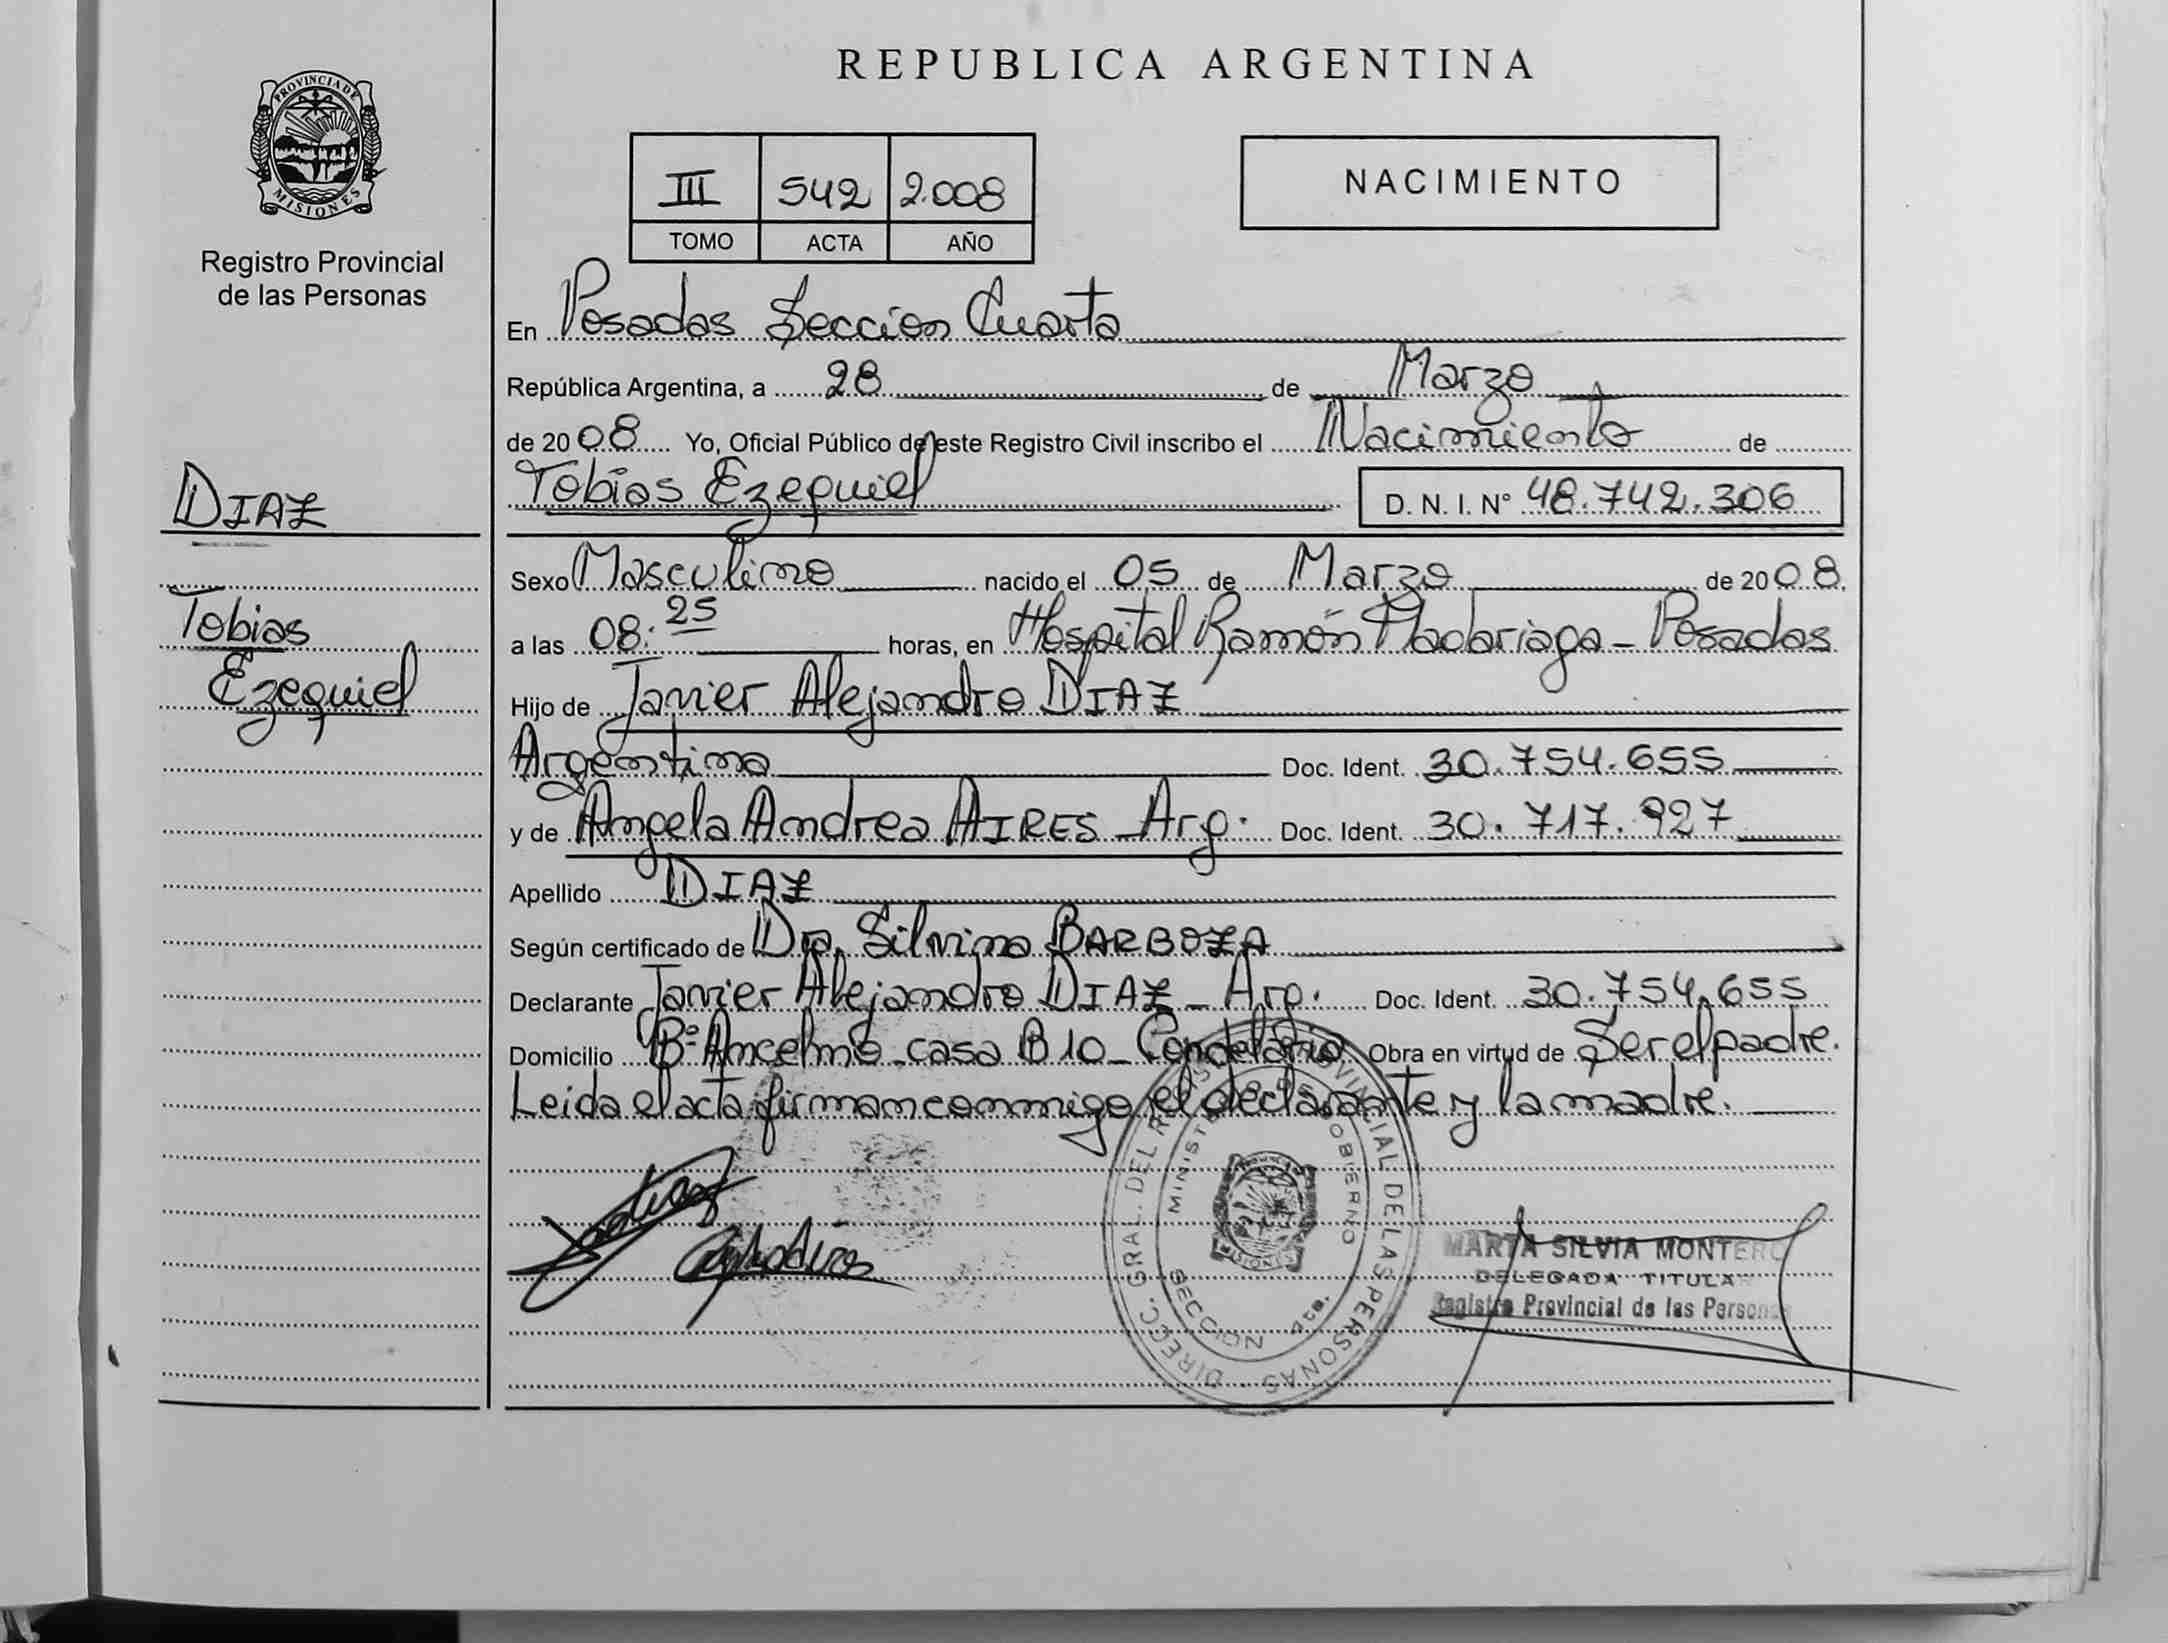 PROVINCIA DE
MISIONES
Registro Provincial
de las Personas
DIAZ
Tobias
Ezequiel
REPUBLICA ARGENTINA
III 542 2.008
TOMO ACTA AÑO
NACIMIENTO
En Posadas Sección Cuarta
República Argentina, a 28 de Marzo
de 2008 Yo, Oficial Público de este Registro Civil inscribo el Nacimiento de
Tobias Ezequiel D. N. I. N° 48.742.306
Sexo Masculino nacido el 05 de Marzo de 2008.
a las 08:25 horas, en Hospital Ramón Madariaga - Posadas
Hijo de Javier Alejandro DIAZ
Argentino Doc. Ident. 30.754.655
y de Angela Andrea AIRES - Arg. Doc. Ident. 30.717.927
Apellido DIAZ
Según certificado de Dra. Silvina BARBOZA
Declarante Javier Alejandro DIAZ - Arg. Doc. Ident. 30.754.655
Domicilio B° Ancelmo casa B 10 - Candelaria Obra en virtud de Ser el padre.
Leida el acta firman conmigo el declarante y la madre.
DIREC. GRAL. DEL PROVINCIAL DE LAS PERSONAS
MINISTERIO DE GOBIERNO
MISIONES
SECCION 4ta.
MARTA SILVIA MONTERO
DELEGADA TITULAR
Registro Provincial de las Personas